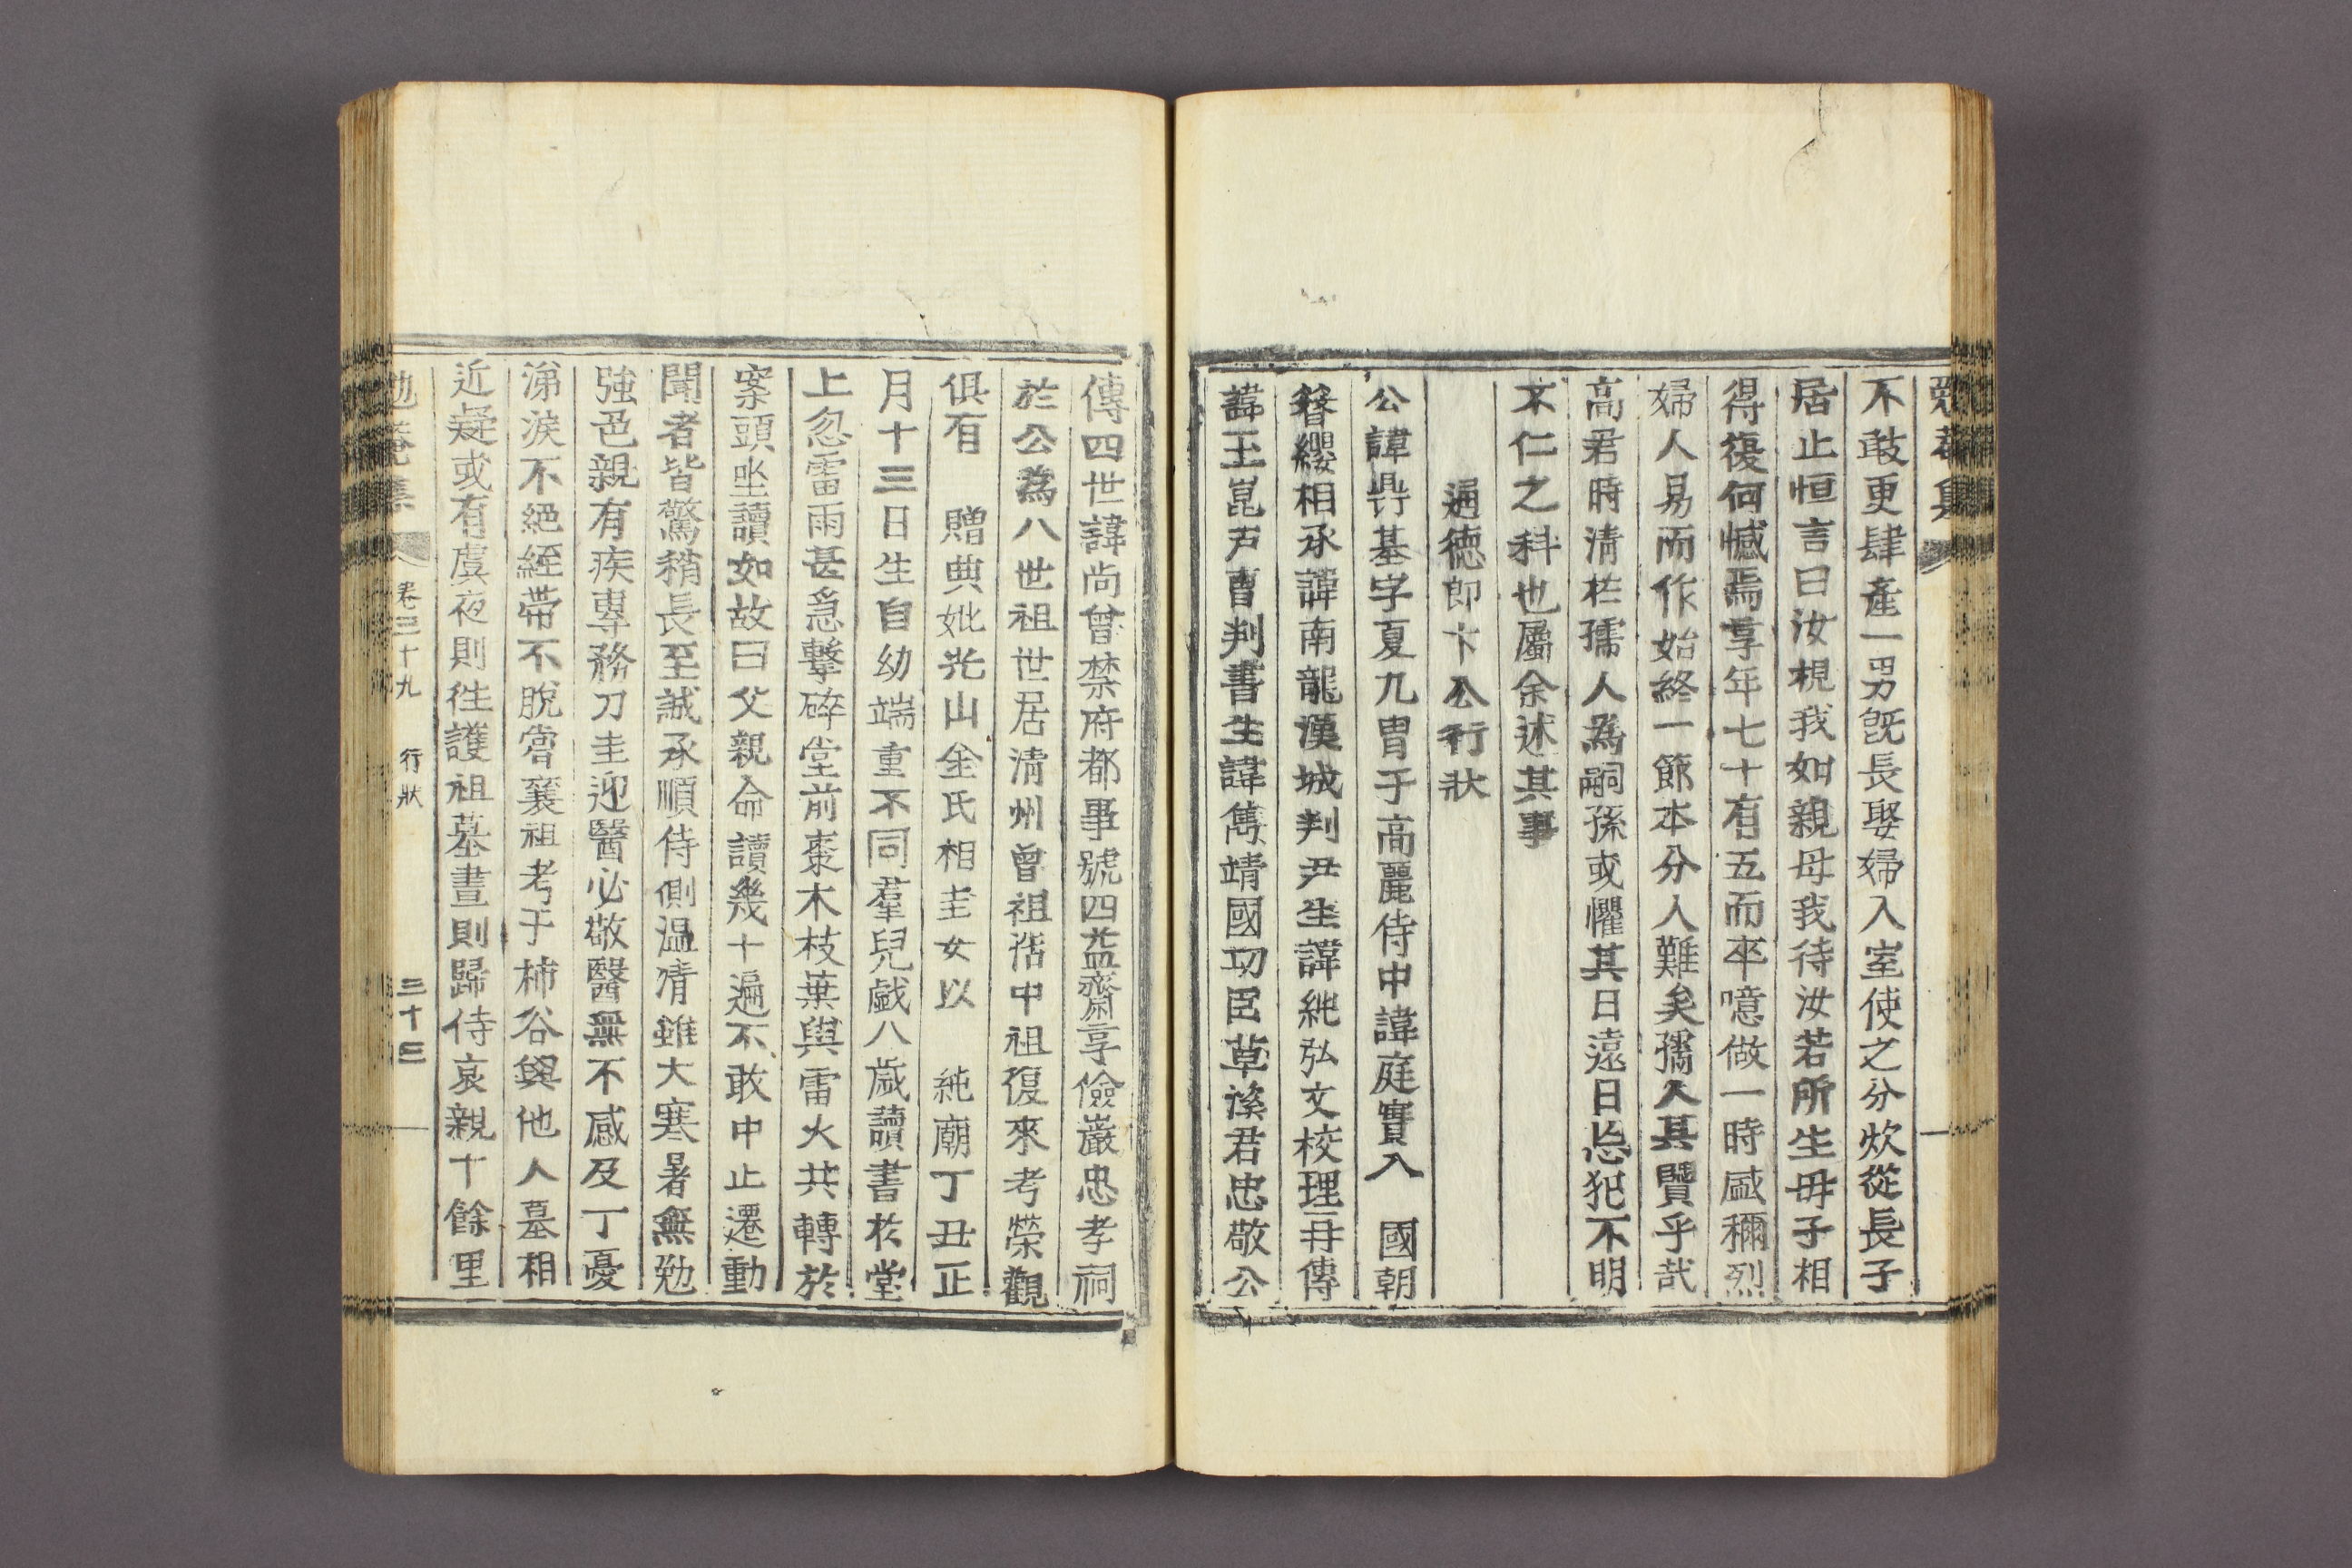 不敢更肆產一男旣長娶婦入室使之分炊從長子
居止恒言曰汝視我如親母我待汝若所生毋子相
得復何憾焉享年七十有五而卒噫做一時感稱烈
婦人易而作始終一節本分人難矣孺人其賢乎哉
高君時淸在孺人為嗣孫或懼其日遠日忘犯不明
不仁之科也屬余述其事
通德郞卞公行狀
公諱鼎基字夏九胄于高麗侍中諱庭實入 國朝
簪纓相承諱南龍漢城判尹生諱純弘文校理再傳
諱王崑戶曹判書生諱儁靖國功臣草溪君忠敬公
傳四世諱尙曾禁府都事號四益齋享儉巖忠孝祠
於公為八世祖世居淸州曾祖湉中祖復來考榮觀
俱有 贈典妣光山金氏相圭女以 純廟丁丑正
月十三日生自幼端重不同羣兒戱八歲讀書於堂
上忽雷雨甚急擊碎堂前棗木枝葉與雷火共轉於
案頭坐讀如故曰父親命讀幾十遍不敢中止遷動
聞者皆驚稍長至誠承順侍側溫凊雖大寒暑無勉
強色親有疾專務刀圭迎醫必敬醫無不感及丁憂
涕淚不絕絰帶不脫嘗襄祖考于柿谷與他人墓相
近疑或有虞夜則徃護祖墓晝則歸侍哀親十餘里
勉菴集 卷三十九 行狀 三十三